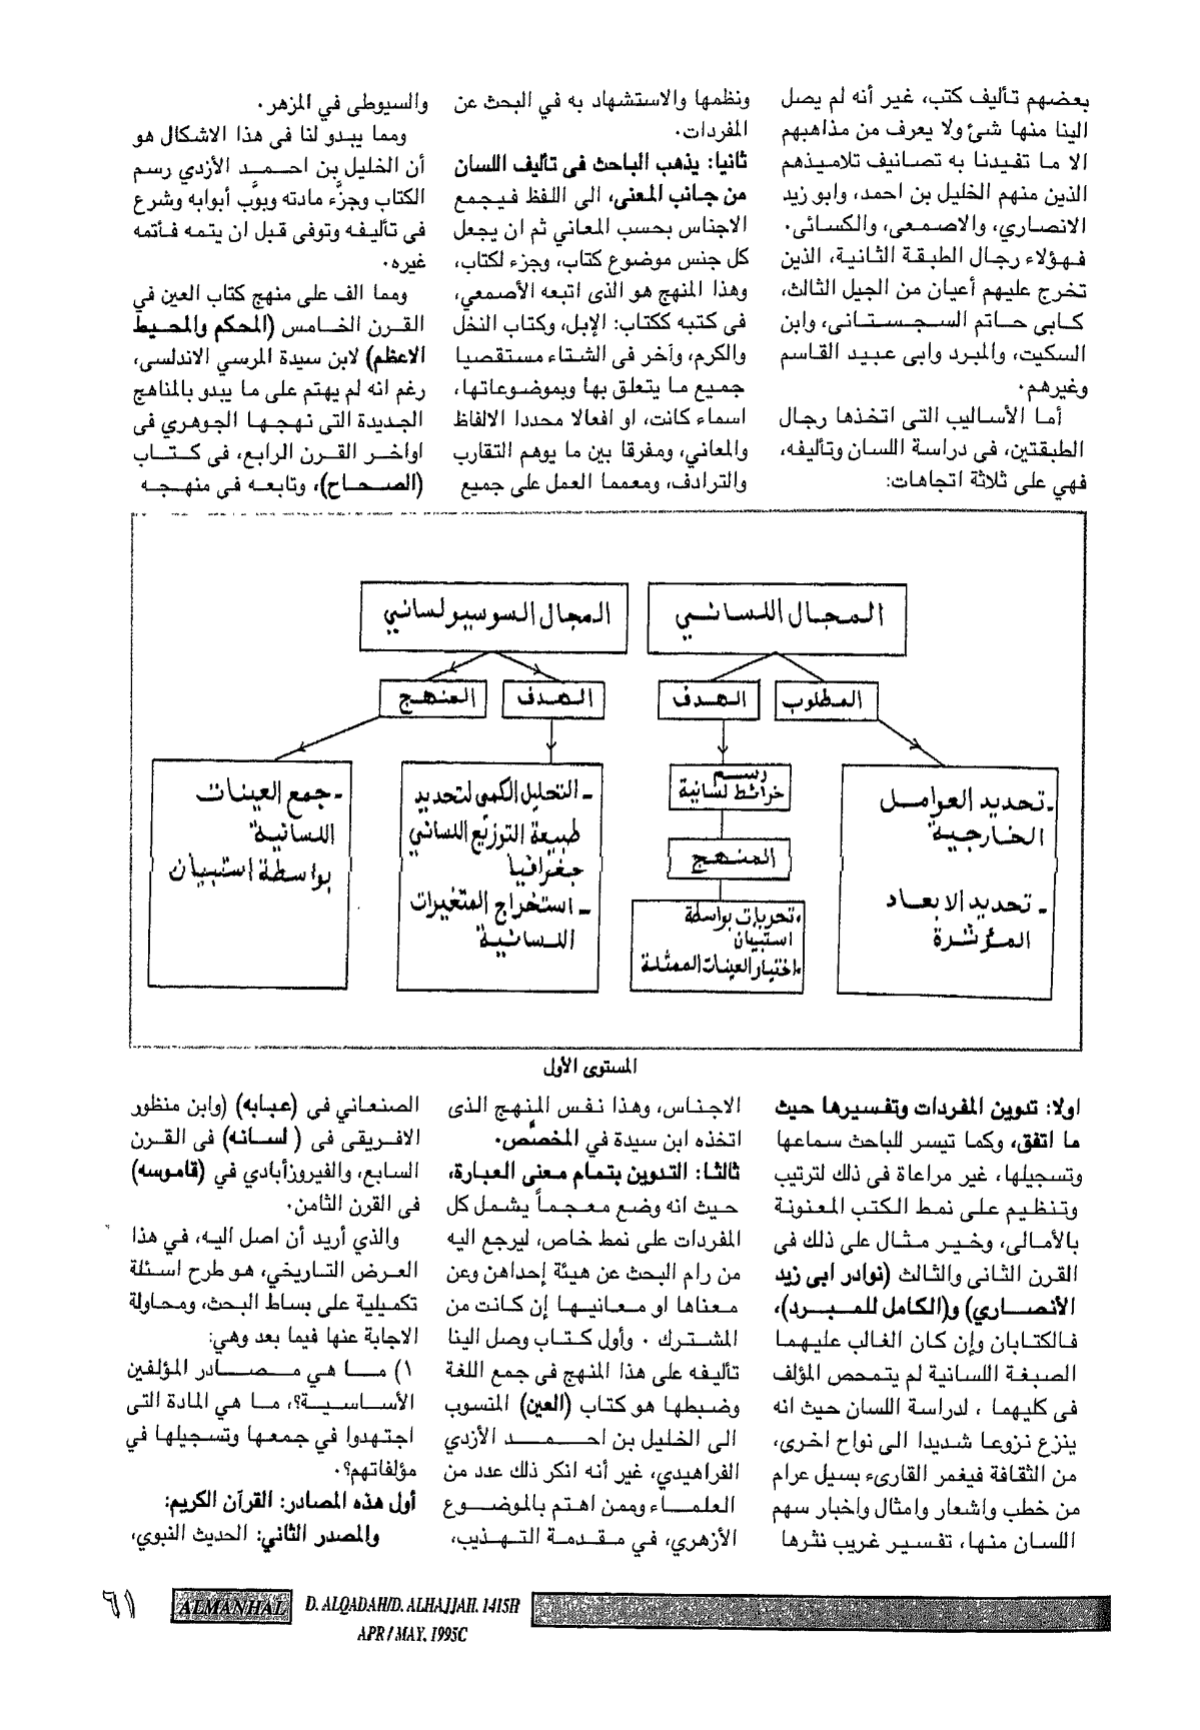 بعضهم تأليف كتب، غير أنه لم يصل
الينا منها شئ ولا يعرف من مذاهبهم
الا ما تفيدنا به تصانيف تلاميذهم
الذين منهم الخليل بن احمد، وابو زيد
الانصاري، والاصمعى، والكسائى.
فهؤلاء رجال الطبقة الثانية، الذين
تخرج عليهم أعيان من الجيل الثالث،
كابى حاتم السجستانى، وابن
السكيت، والمبرد وابى عبيد القاسم
وغيرهم.
أما الأساليب التى اتخذها رجال
الطبقتين، فى دراسة اللسان وتأليفه،
فهي على ثلاثة اتجاهات:
ونظمها والاستشهاد به في البحث عن
المفردات.
ثانيا: يذهب الباحث فى تأليف اللسان
من جانب المعنى، الى اللفظ فيجمع
الاجناس بحسب المعاني ثم ان يجعل
كل جنس موضوع كتاب، وجزء لكتاب،
وهذا المنهج هو الذى اتبعه الأصمعي،
فى كتبه ككتاب: الإبل، وكتاب النخل
والكرم، وآخر فى الشتاء مستقصيا
جميع ما يتعلق بها وبموضوعاتها،
اسماء كانت، او افعالا محددا الالفاظ
والمعاني، ومفرقا بين ما يوهم التقارب
والترادف، ومعمما العمل على جميع
والسيوطى في المزهر.
ومما يبدو لنا فى هذا الاشكال هو
أن الخليل بن احمد الأزدي رسم
الكتاب وجزَّء مادته وبوَّب أبوابه وشرع
فى تأليفه وتوفى قبل ان يتمه فأتمه
غيره.
ومما الف على منهج كتاب العين في
القرن الخامس (المحكم والمحيط
الاعظم) لابن سيدة المرسي الاندلسى،
رغم انه لم يهتم على ما يبدو بالمناهج
الجديدة التى نهجها الجوهري فى
اواخر القرن الرابع، فى كتاب
(الصحاح)، وتابعه فى منهجه
المجال اللساني
المجال السوسيولساني
المطلوب
الهدف
الهدف
المنهج
ـ تحديد العوامل
الخارجية
ـ تحديد الابعاد
المؤشرة
رسم
خرائط لسانية
المنهج
• تحريات بواسطة
استبيان
• اختيار العينات الممثلة
ـ التحليل الكمي لتحديد
طبيعة التوزيع اللساني
جغرافيا
ـ استخراج المتغيرات
اللسانية
ـ جمع العينات
اللسانية
بواسطة استبيان
المستوى الأول
اولا: تدوين المفردات وتفسيرها حيث
ما اتفق، وكما تيسر للباحث سماعها
وتسجيلها، غير مراعاة فى ذلك لترتيب
وتنظيم على نمط الكتب المعنونة
بالأمالى، وخير مثال على ذلك فى
القرن الثانى والثالث (نوادر ابى زيد
الأنصاري) و(الكامل للمبرد)،
فالكتابان وإن كان الغالب عليهما
الصبغة اللسانية لم يتمحص المؤلف
فى كليهما ، لدراسة اللسان حيث انه
ينزع نزوعا شديدا الى نواح اخرى،
من الثقافة فيغمر القارىء بسيل عرام
من خطب واشعار وامثال واخبار سهم
اللسان منها، تفسير غريب نثرها
الاجناس، وهذا نفس المنهج الذى
اتخذه ابن سيدة في المخصَّص.
ثالثا: التدوين بتمام معنى العبارة،
حيث انه وضع معجماً يشمل كل
المفردات على نمط خاص، ليرجع اليه
من رام البحث عن هيئة إحداهن وعن
معناها او معانيها إن كانت من
المشترك . وأول كتاب وصل الينا
تأليفه على هذا المنهج فى جمع اللغة
وضبطها هو كتاب (العين) المنسوب
الى الخليل بن احمد الأزدي
الفراهيدي، غير أنه انكر ذلك عدد من
العلماء وممن اهتم بالموضوع
الأزهري، في مقدمة التهذيب،
الصنعاني في (عبابه) (وابن منظور
الافريقى فى ( لسانه) فى القرن
السابع، والفيروزأبادي في (قاموسه)
فى القرن الثامن.
والذي أريد أن اصل اليه، في هذا
العرض التاريخي، هو طرح اسئلة
تكميلية على بساط البحث، ومحاولة
الاجابة عنها فيما بعد وهي:
١) ما هي مصادر المؤلفين
الأساسية؟، ما هي المادة التى
اجتهدوا في جمعها وتسجيلها في
مؤلفاتهم؟.
أول هذه المصادر: القرآن الكريم:
والمصدر الثاني: الحديث النبوي،
٦١
ALMANHAL
D. ALQADAH/D. ALHAJJAH. 1415H
APR / MAY. 1995C